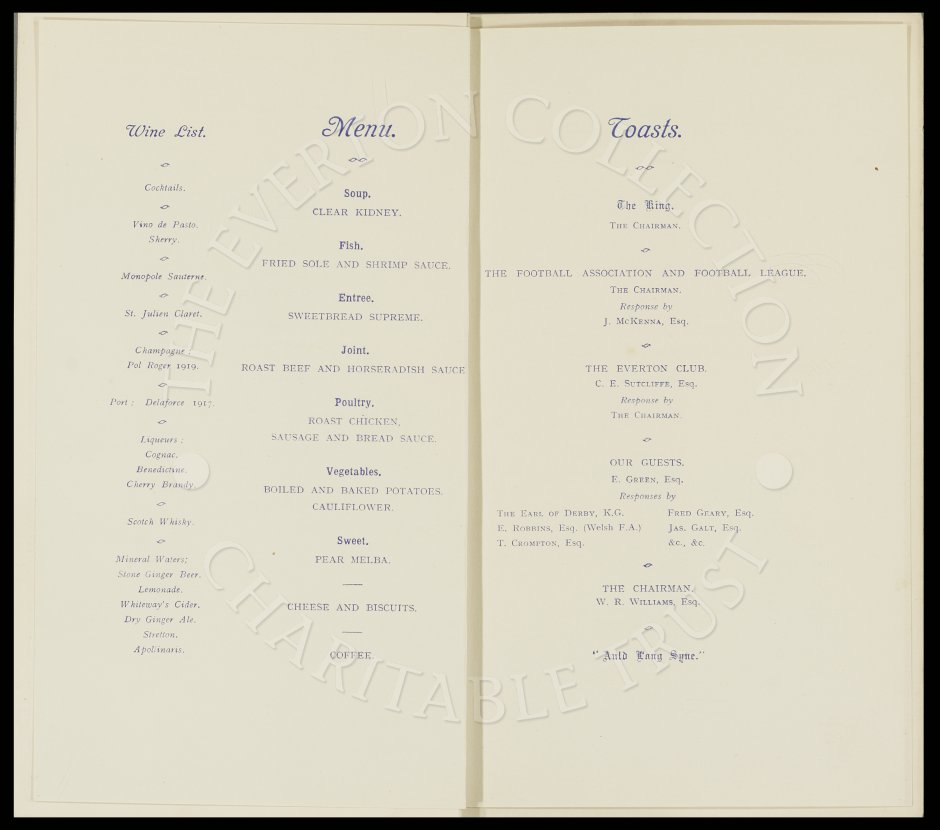 Wine List.
Cocktails.
Vino de Pasto.
Sherry.
Monopole Sauterne.
St. Julien Claret.
Champagne:
Pol Roger 1919.
Port: Delaforce 1917.
Liqueurs:
Cognac.
Benedictine.
Cherry Brandy.
Scotch Whisky.
Mineral Waters;
Stone Ginger Beer.
Lemonade.
Whiteway's Cider.
Dry Ginger Ale.
Stretton.
Apollinaris.
Menu.
Soup.
CLEAR KIDNEY.
Fish.
FRIED SOLE AND SHRIMP SAUCE.
Entree.
SWEETBREAD SUPREME.
Joint.
ROAST BEEF AND HORSERADISH SAUCE
Poultry.
ROAST CHICKEN,
SAUSAGE AND BREAD SAUCE.
Vegetables.
BOILED AND BAKED POTATOES.
CAULIFLOWER.
Sweet.
PEAR MELBA.
CHEESE AND BISCUITS.
COFFEE.
Toasts.
The King.
THE CHAIRMAN.
THE FOOTBALL ASSOCIATION AND FOOTBALL LEAGUE.
THE CHAIRMAN.
Response by
J. MCKENNA, Esq.
THE EVERTON CLUB.
C. E. SUTCLIFFE, Esq.
Response by
THE CHAIRMAN.
OUR GUESTS.
E. GREEN, Esq.
Responses by
THE EARL OF DERBY, K.G. FRED GEARY, Esq.
E. ROBBINS, Esq. (Welsh F.A.) JAS. GALT, Esq.
T. CROMPTON, Esq. &c., &c.
THE CHAIRMAN.
W. R. WILLIAMS, Esq.
"Auld Lang Syne."
THE EVERTON COLLECTION
CHARITABLE TRUST